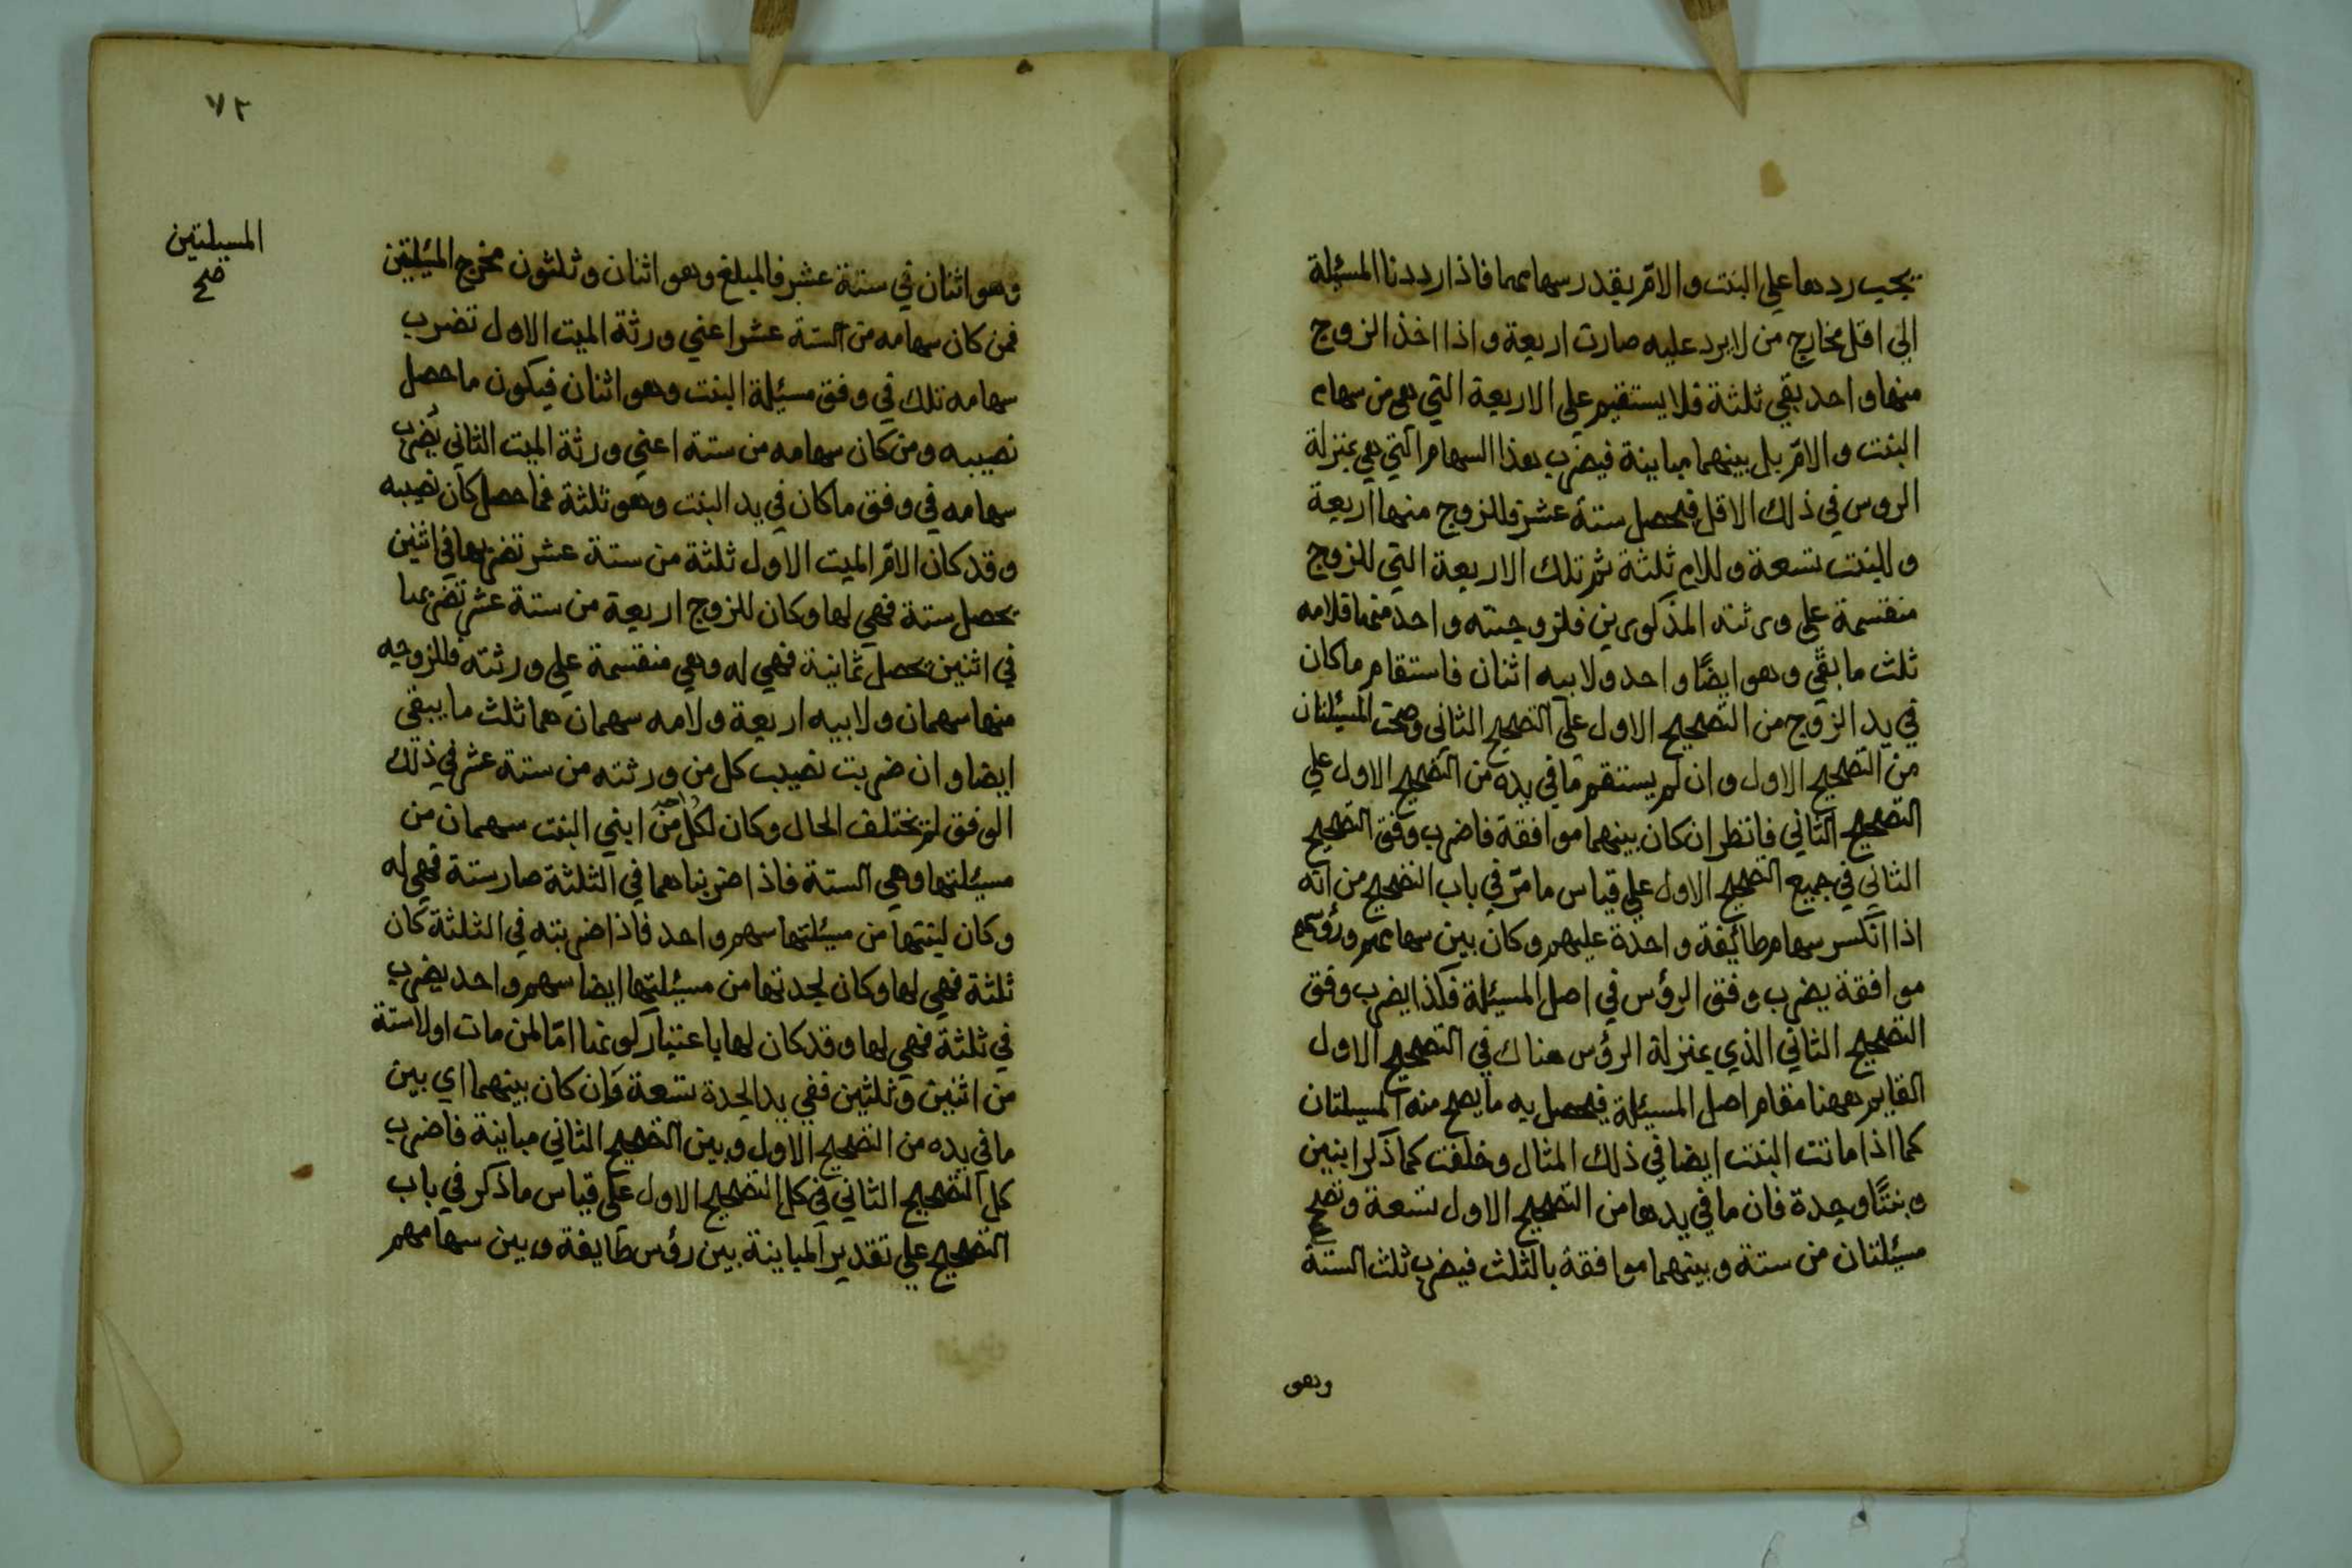 يجب ردها علي البنت والامّ بقدر سهامهما فاذا رددنا المسئلة
الي اقل مخارج من لا يرد عليه صارت اربعة واذا اخذ الزوج
منها واحد بقي ثلثة فلا يستقيم علي الاربعة التي هي من سهام
البنت والامّ بل بينهما مباينة فيضرب هذا السهام التي هي بمنزلة
الروس في ذلك الاقل فيحصل ستة عشر فللزوج منها اربعة
وللبنت تسعة وللام ثلثة ثم تلك الاربعة التي للزوج
منقسمة علي ورثته المذكورين فلزوجته واحد منها فلامه
ثلث ما بقي وهو ايضًا واحد ولابيه اثنان فاستقام ما كان
في يد الزوج من التصحيح الاول علي التصحيح الثاني وصحت المسئلتان
من التصحيح الاول وان لم يستقم ما في يده من التصحيح الاول علي
التصحيح الثاني فانظر ان كان بينهما موافقة فاضرب وفق التصحيح
الثاني في جميع التصحيح الاول علي قياس ما مرّ في باب التصحيح من انّه
اذا انكسر سهام طائفة واحدة عليهم وكان بين سهامهم ورؤسهم
موافقة يضرب وفق الرؤس في اصل المسئلة فكذا يضرب وفق
التصحيح الثاني الذي بمنزلة الرؤس هناك في التصحيح الاول
القايم ههنا مقام اصل المسئلة فيحصل به ما يصح منه المسيلتان
كما اذا ماتت البنت ايضا في ذلك المثال وخلفت كما ذكر ابنين
وبنتًا وجدة فان ما في يدها من التصحيح الاول تسعة وتصح
مسئلتان من ستة وبينهما موافقة بالثلث فيضرب ثلث الستة
وهو
٧٢
وهو اثنان في ستة عشر فالمبلغ وهو اثنان وثلثون مخرج المئيلتين
المسيلتين
صح
فمن كان سهامه من الستة عشر اعني ورثة الميت الاول تضرب
سهامه تلك في وفق مسئلة البنت وهو اثنان فيكون ما حصل
نصيبه ومن كان سهامه من ستة اعني ورثة الميت الثاني يُضرب
سهامه في وفق ما كان في يد البنت وهو ثلثة فما حصل كان نصيبه
وقد كان الامّ الميت الاول ثلثة من ستة عشر تضربها في اثنين
يحصل ستة فهي لها وكان للزوج اربعة من ستة عشر تضربها
في اثنين يحصل ثمانية فهي له وهي منقسمة علي ورثته فللزوجه
منها سهمان ولابيه اربعة ولامه سهمان هما ثلث ما يبقي
ايضا وان ضربت نصيب كل من ورثته من ستة عشر في ذلك
الوفق لم يختلف الحال وكان لكل واحد من ابني البنت سهمان من
مسيئلتها وهي الستة فاذا ضربناهما في الثلثة صار ستة فهي له
وكان لبنتها من مسيئلتها سهم واحد فاذا ضربته في الثلثة كان
ثلثة فهي لها وكان لجدتها من مسيئلتها ايضا سهم واحد يضرب
في ثلثة فهي لها وقد كان لها باعتبار كونها امّا لمن مات اولا ستة
من اثنين وثلثين ففي يد الجدة تسعة وان كان بينهما اي بين
ما في يده من التصحيح الاول وبين التصحيح الثاني مباينة فاضرب
كل التصحيح الثاني في كل التصحيح الاول علي قياس ما ذكر في باب
التصحيح علي تقدير المباينة بين رؤس طايفة وبين سهامهم